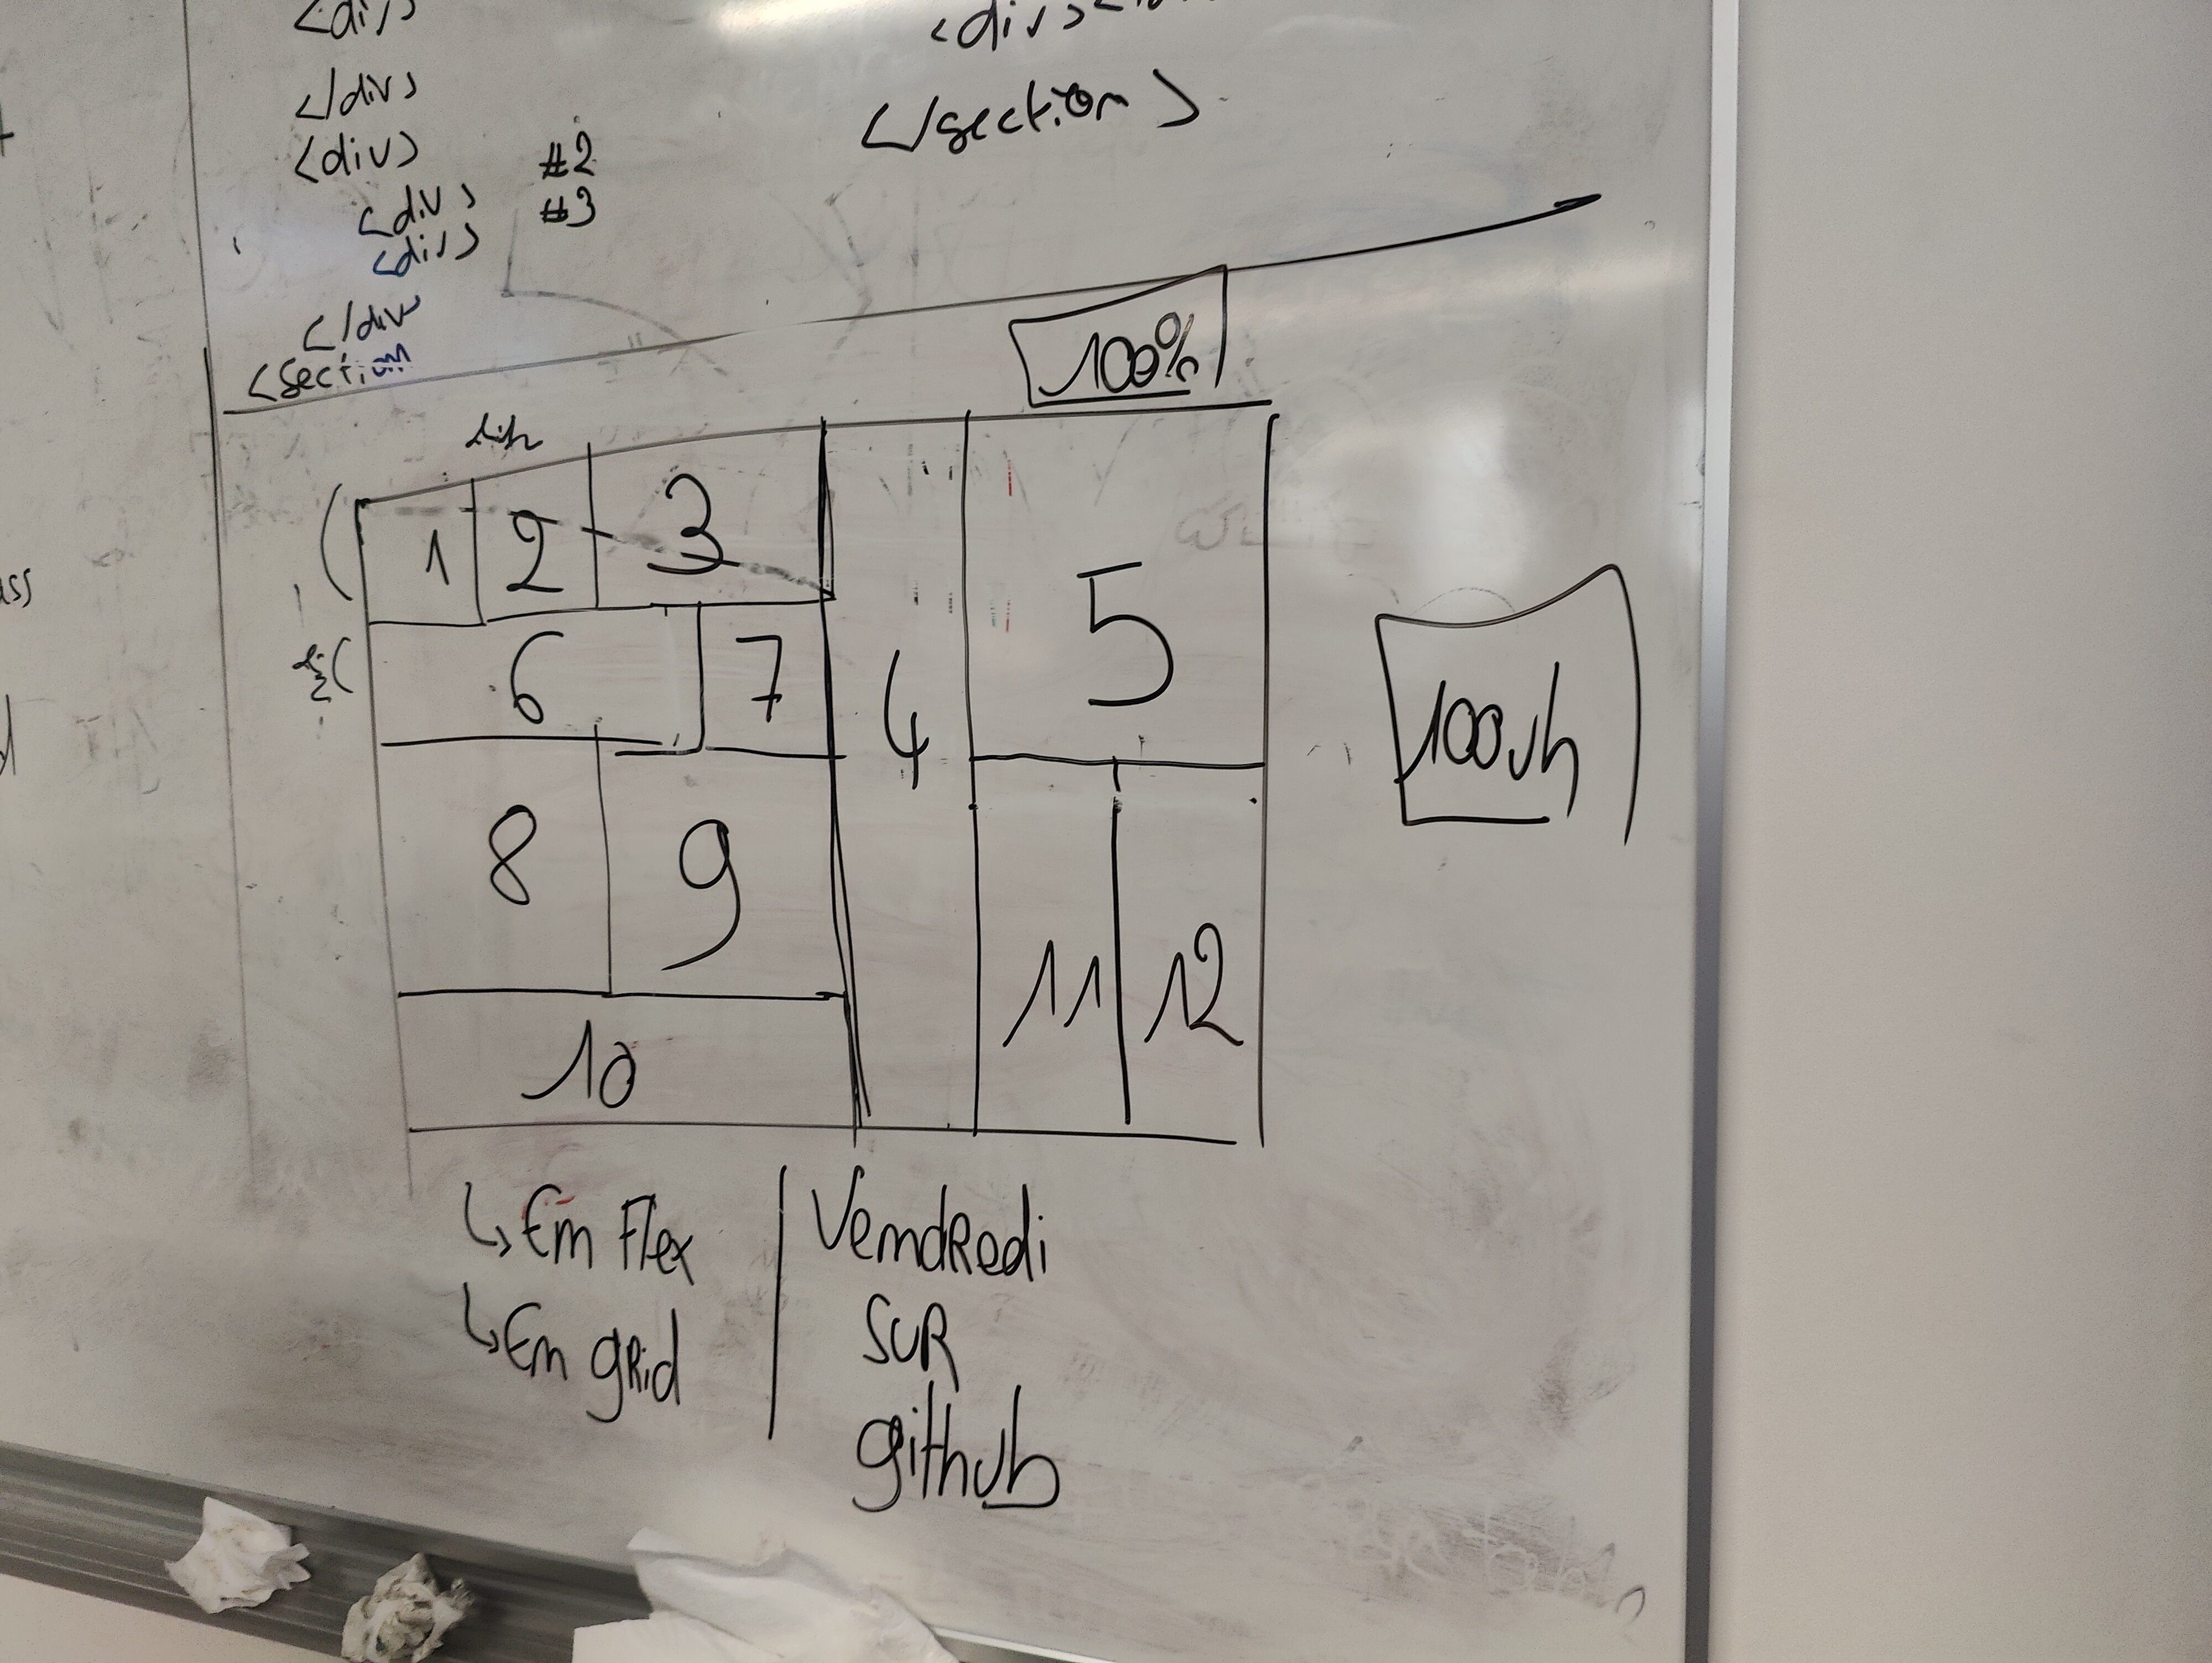 <div>
</div>
<div> #2
<div> #3
<div>
</div
<section
<div>
</section>
100%
1 2 3
4
5
6 7
8 9
10
11 12
100vh
↳ En Flex
↳ En gRid
VendRedi
SUR
github